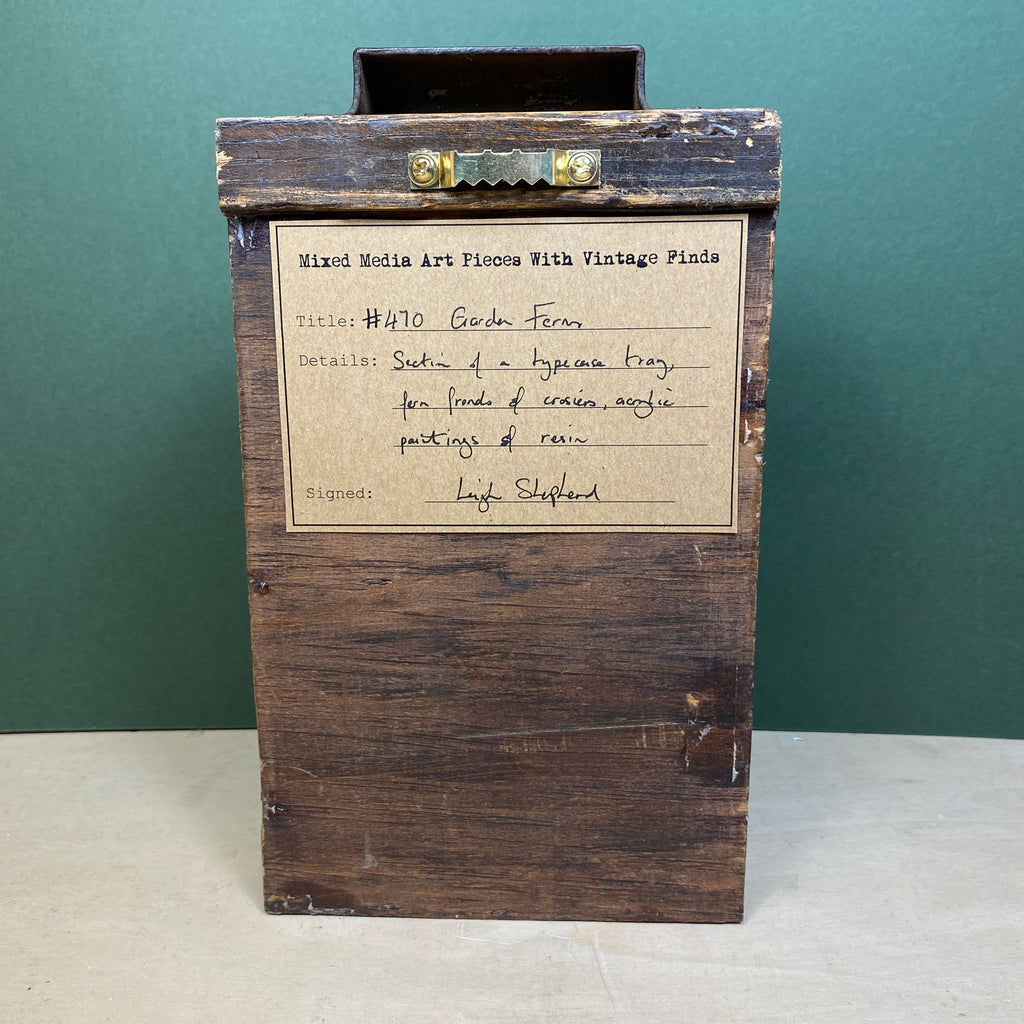 Mixed Media Art Pieces With Vintage Finds
Title: #470 Garden Ferns
Details: Section of a typecase tray,
fern fronds & crosiers, acrylic
paintings & resin
Signed: Leigh Shepherd